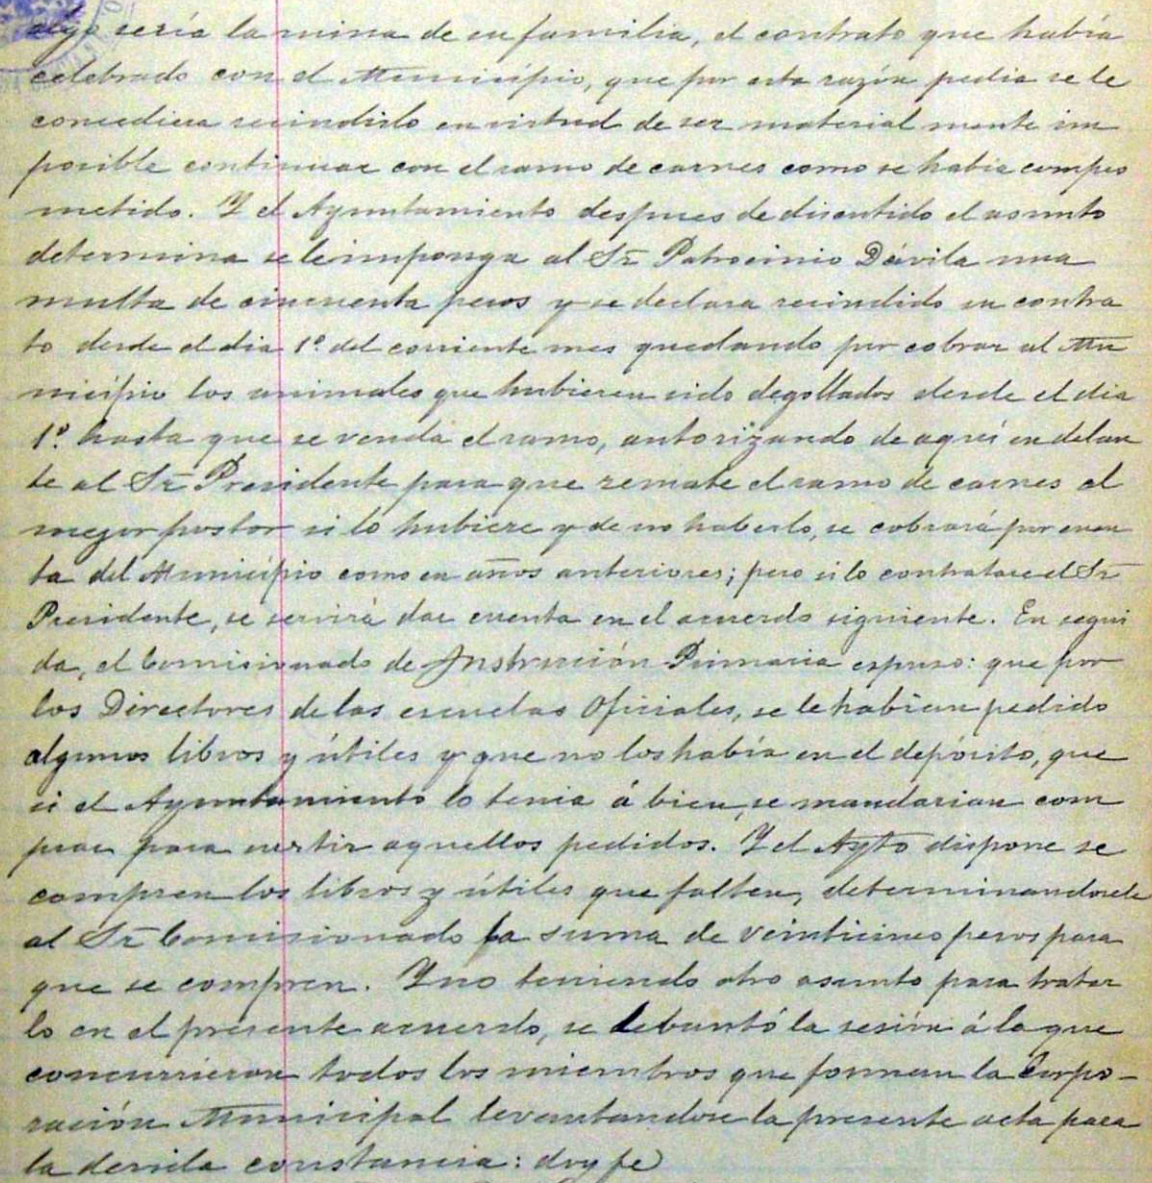 algo sería la ruina de su familia, el contrato que había
celebrado con el Municipio, que por esta razón pedia se le
concediera recindirlo en virtud de ser material mente im
posible continuar con el ramo de carnes como se habia compro
metido. Y el Ayuntamiento despues de discutido el asunto
determina se le imponga al Sr. Patrocinio Dávila una
multa de cincuenta pesos y se declara recindido su contra
to desde el dia 1º del corriente mes quedando por cobrar al Mu
nicipio los animales que hubieren sido degollados desde el dia
1º hasta que se venda el ramo, autorizando de aquí en delan
te al Sr. Presidente para que remate el ramo de carnes al
mejor postor si lo hubiere y de no haberlo, se cobrará por cuen
ta del Municipio como en años anteriores; pero si lo contratare el Sr.
Presidente, se servirá dar cuenta en el acuerdo siguiente. En segui
da, el Comisionado de Instrucción Primaria espuso: que por
los Directores de las escuelas Oficiales, se le habian pedido
algunos libros y útiles y que no los había en el depósito, que
si el Ayuntamiento lo tenia á bien, se mandarian com
prar para surtir aquellos pedidos. Y el Ayto dispone se
compren los libros y útiles que falten, determinandosele
al Sr. Comisionado la suma de veinticinco pesos para
que se compren. Y no teniendo otro asunto para tratar
lo en el presente acuerdo, se lebantó la sesión á la que
concurrieron todos los miembros que forman la Corpo-
ración Municipal levantandose la presente acta para
la devida constancia: doy fe